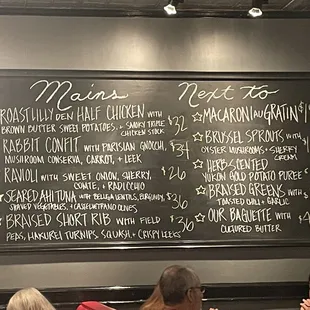 Mains
ROAST LILLY DEN HALF CHICKEN WITH
BROWN BUTTER SWEET POTATOES, + SMOKY TRIPLE
CHICKEN STOCK
$32
RABBIT CONFIT WITH PARISIAN GNOCCHI,
MUSHROOM CONSERVA, CARROT, + LEEK
$34
RAVIOLI WITH SWEET ONION, SHERRY,
COMTE, + RADICCHIO
$26
SEARED AHI TUNA WITH BELUGA LENTILS, BURGUNDY,
SHAVED VEGETABLES, + CASTELVETRANO OLIVES
$36
BRAISED SHORT RIB WITH FIELD
PEAS, HAKUREI TURNIPS, SQUASH, + CRISPY LEEKS
$36
Next to
MACARONI AU GRATIN
BRUSSEL SPROUTS WITH
OYSTER MUSHROOMS + SHERRY
CREAM
HERB SCENTED
YUKON GOLD POTATO PUREE
BRAISED GREENS WITH
TOASTED CHILI + GARLIC
OUR BAGUETTE WITH
CULTURED BUTTER